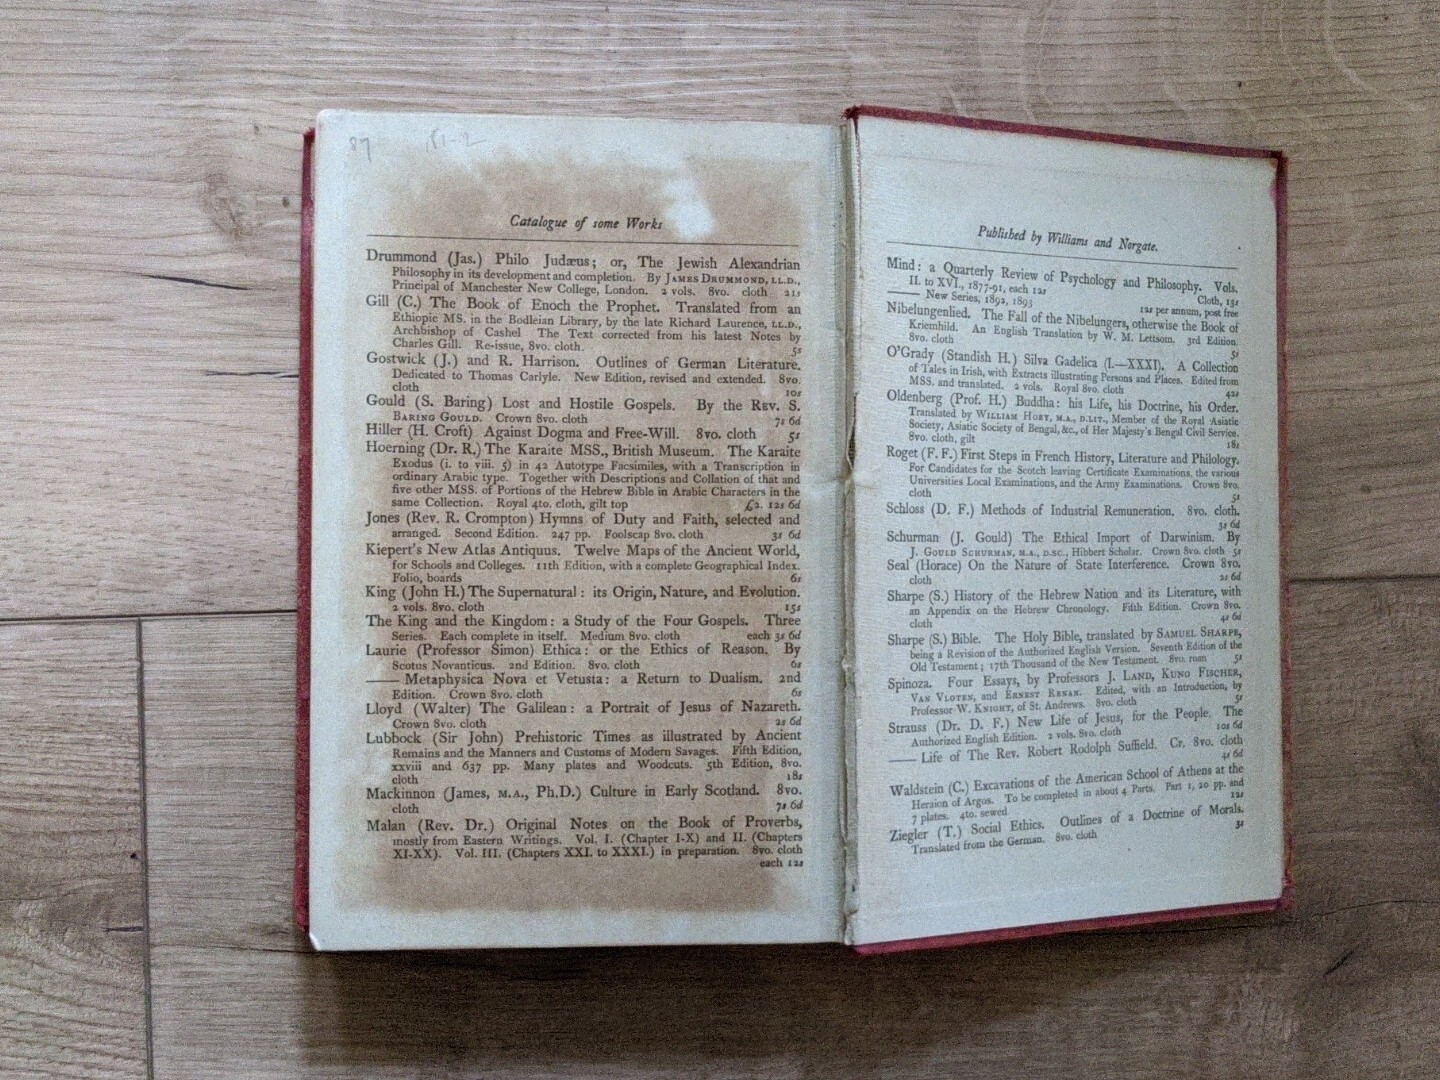 87
Catalogue of some Works
Drummond (Jas.) Philo Judæus; or, The Jewish Alexandrian
Philosophy in its development and completion. By JAMES DRUMMOND, LL.D.,
Principal of Manchester New College, London. 2 vols. 8vo. cloth 21s
Gill (C.) The Book of Enoch the Prophet. Translated from an
Ethiopic MS. in the Bodleian Library, by the late Richard Laurence, LL.D.,
Archbishop of Cashel The Text corrected from his latest Notes by
Charles Gill. Re-issue, 8vo. cloth. 5s
Gostwick (J.) and R. Harrison. Outlines of German Literature.
Dedicated to Thomas Carlyle. New Edition, revised and extended. 8vo.
cloth 10s
Gould (S. Baring) Lost and Hostile Gospels. By the REV. S.
BARING GOULD. Crown 8vo. cloth 7s 6d
Hiller (H. Croft) Against Dogma and Free-Will. 8vo. cloth 5s
Hoerning (Dr. R.) The Karaite MSS., British Museum. The Karaite
Exodus (i. to viii. 5) in 42 Autotype Facsimiles, with a Transcription in
ordinary Arabic type. Together with Descriptions and Collation of that and
five other MSS. of Portions of the Hebrew Bible in Arabic Characters in the
same Collection. Royal 4to. cloth, gilt top £2. 12s 6d
Jones (Rev. R. Crompton) Hymns of Duty and Faith, selected and
arranged. Second Edition. 247 pp. Foolscap 8vo. cloth 3s 6d
Kiepert's New Atlas Antiquus. Twelve Maps of the Ancient World,
for Schools and Colleges. 11th Edition, with a complete Geographical Index.
Folio, boards 6s
King (John H.) The Supernatural: its Origin, Nature, and Evolution.
2 vols. 8vo. cloth 15s
The King and the Kingdom: a Study of the Four Gospels. Three
Series. Each complete in itself. Medium 8vo. cloth each 3s 6d
Laurie (Professor Simon) Ethica: or the Ethics of Reason. By
Scotus Novanticus. 2nd Edition. 8vo. cloth 6s
—— Metaphysica Nova et Vetusta: a Return to Dualism. 2nd
Edition. Crown 8vo. cloth 6s
Lloyd (Walter) The Galilean: a Portrait of Jesus of Nazareth.
Crown 8vo. cloth 2s 6d
Lubbock (Sir John) Prehistoric Times as illustrated by Ancient
Remains and the Manners and Customs of Modern Savages. Fifth Edition,
xxviii and 637 pp. Many plates and Woodcuts. 5th Edition, 8vo.
cloth 18s
Mackinnon (James, M.A., Ph.D.) Culture in Early Scotland. 8vo.
cloth 7s 6d
Malan (Rev. Dr.) Original Notes on the Book of Proverbs,
mostly from Eastern Writings. Vol. I. (Chapter I-X) and II. (Chapters
XI-XX). Vol. III. (Chapters XXI. to XXXI.) in preparation. 8vo. cloth
each 12s
Published by Williams and Norgate.
Mind: a Quarterly Review of Psychology and Philosophy. Vols.
II. to XVI., 1877-91, each 12s Cloth, 13s
—— New Series, 1892, 1893 12s per annum, post free
Nibelungenlied. The Fall of the Nibelungers, otherwise the Book of
Kriemhild. An English Translation by W. M. Lettsom. 3rd Edition.
8vo. cloth 5s
O'Grady (Standish H.) Silva Gadelica (I.—XXXI). A Collection
of Tales in Irish, with Extracts illustrating Persons and Places. Edited from
MSS. and translated. 2 vols. Royal 8vo. cloth 42s
Oldenberg (Prof. H.) Buddha: his Life, his Doctrine, his Order.
Translated by WILLIAM HOEY, M.A., D.LIT., Member of the Royal Asiatic
Society, Asiatic Society of Bengal, &c., of Her Majesty's Bengal Civil Service.
8vo. cloth, gilt 18s
Roget (F. F.) First Steps in French History, Literature and Philology.
For Candidates for the Scotch leaving Certificate Examinations, the various
Universities Local Examinations, and the Army Examinations. Crown 8vo.
cloth 5s
Schloss (D. F.) Methods of Industrial Remuneration. 8vo. cloth.
3s 6d
Schurman (J. Gould) The Ethical Import of Darwinism. By
J. GOULD SCHURMAN, M.A., D.SC., Hibbert Scholar. Crown 8vo. cloth 5s
Seal (Horace) On the Nature of State Interference. Crown 8vo.
cloth 2s 6d
Sharpe (S.) History of the Hebrew Nation and its Literature, with
an Appendix on the Hebrew Chronology. Fifth Edition. Crown 8vo.
cloth 4s 6d
Sharpe (S.) Bible. The Holy Bible, translated by SAMUEL SHARPE,
being a Revision of the Authorized English Version. Seventh Edition of the
Old Testament; 17th Thousand of the New Testament. 8vo. roan 5s
Spinoza. Four Essays, by Professors J. LAND, KUNO FISCHER,
VAN VLOTEN, and ERNEST RENAN. Edited, with an Introduction, by
Professor W. KNIGHT, of St. Andrews. 8vo. cloth 5s
Strauss (Dr. D. F.) New Life of Jesus, for the People. The
Authorized English Edition. 2 vols. 8vo. cloth 10s 6d
—— Life of The Rev. Robert Rodolph Suffield. Cr. 8vo. cloth
4s 6d
Waldstein (C.) Excavations of the American School of Athens at the
Heraion of Argos. To be completed in about 4 Parts. Part 1, 20 pp. and
7 plates. 4to. sewed 12s
Ziegler (T.) Social Ethics. Outlines of a Doctrine of Morals.
Translated from the German. 8vo. cloth 3s